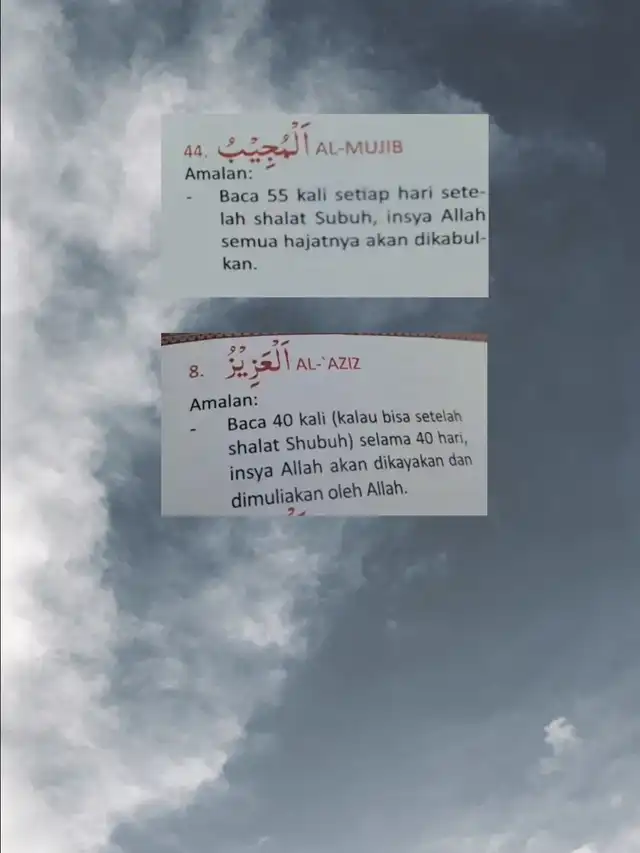 44. اَلْمُجِيْبُ AL-MUJIB
Amalan:
- Baca 55 kali setiap hari sete-
lah shalat Subuh, insya Allah
semua hajatnya akan dikabul-
kan.
8. اَلْعَزِيْزُ AL-`AZIZ
Amalan:
- Baca 40 kali (kalau bisa setelah
shalat Shubuh) selama 40 hari,
insya Allah akan dikayakan dan
dimuliakan oleh Allah.